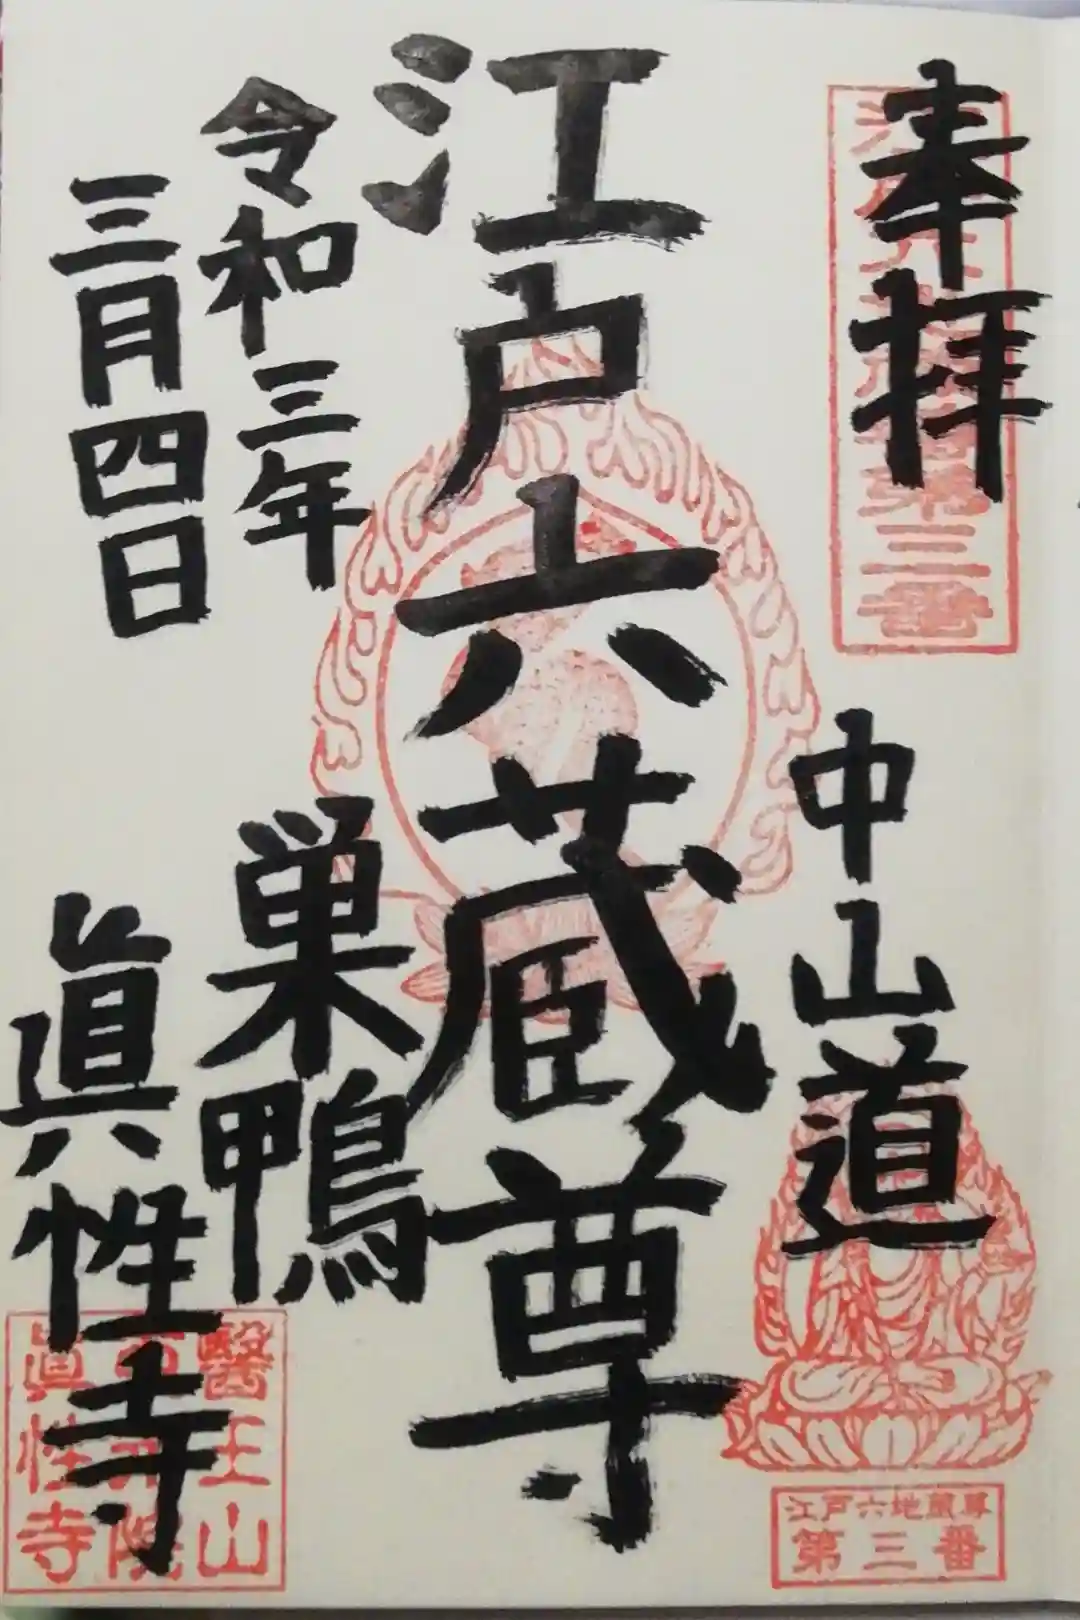 奉拝
中山道
江戸六蔵尊
令和三年
三月四日
巣鴨
眞性寺
第三番
江戸六地蔵尊
第三番
醫王山
眞性寺